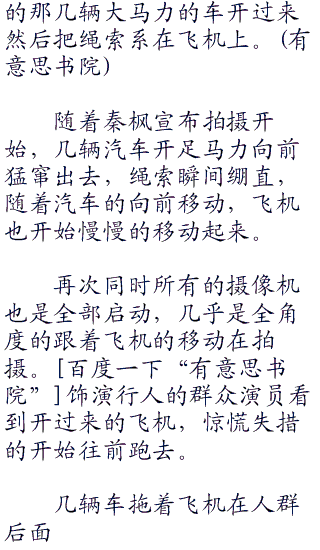 的那几辆大马力的车开过来
然后把绳索系在飞机上。(有
意思书院)
随着秦枫宣布拍摄开
始，几辆汽车开足马力向前
猛窜出去，绳索瞬间绷直，
随着汽车的向前移动，飞机
也开始慢慢的移动起来。
再次同时所有的摄像机
也是全部启动，几乎是全角
度的跟着飞机的移动在拍
摄。[百度一下“有意思书
院”]饰演行人的群众演员看
到开过来的飞机，惊慌失措
的开始往前跑去。
几辆车拖着飞机在人群
后面